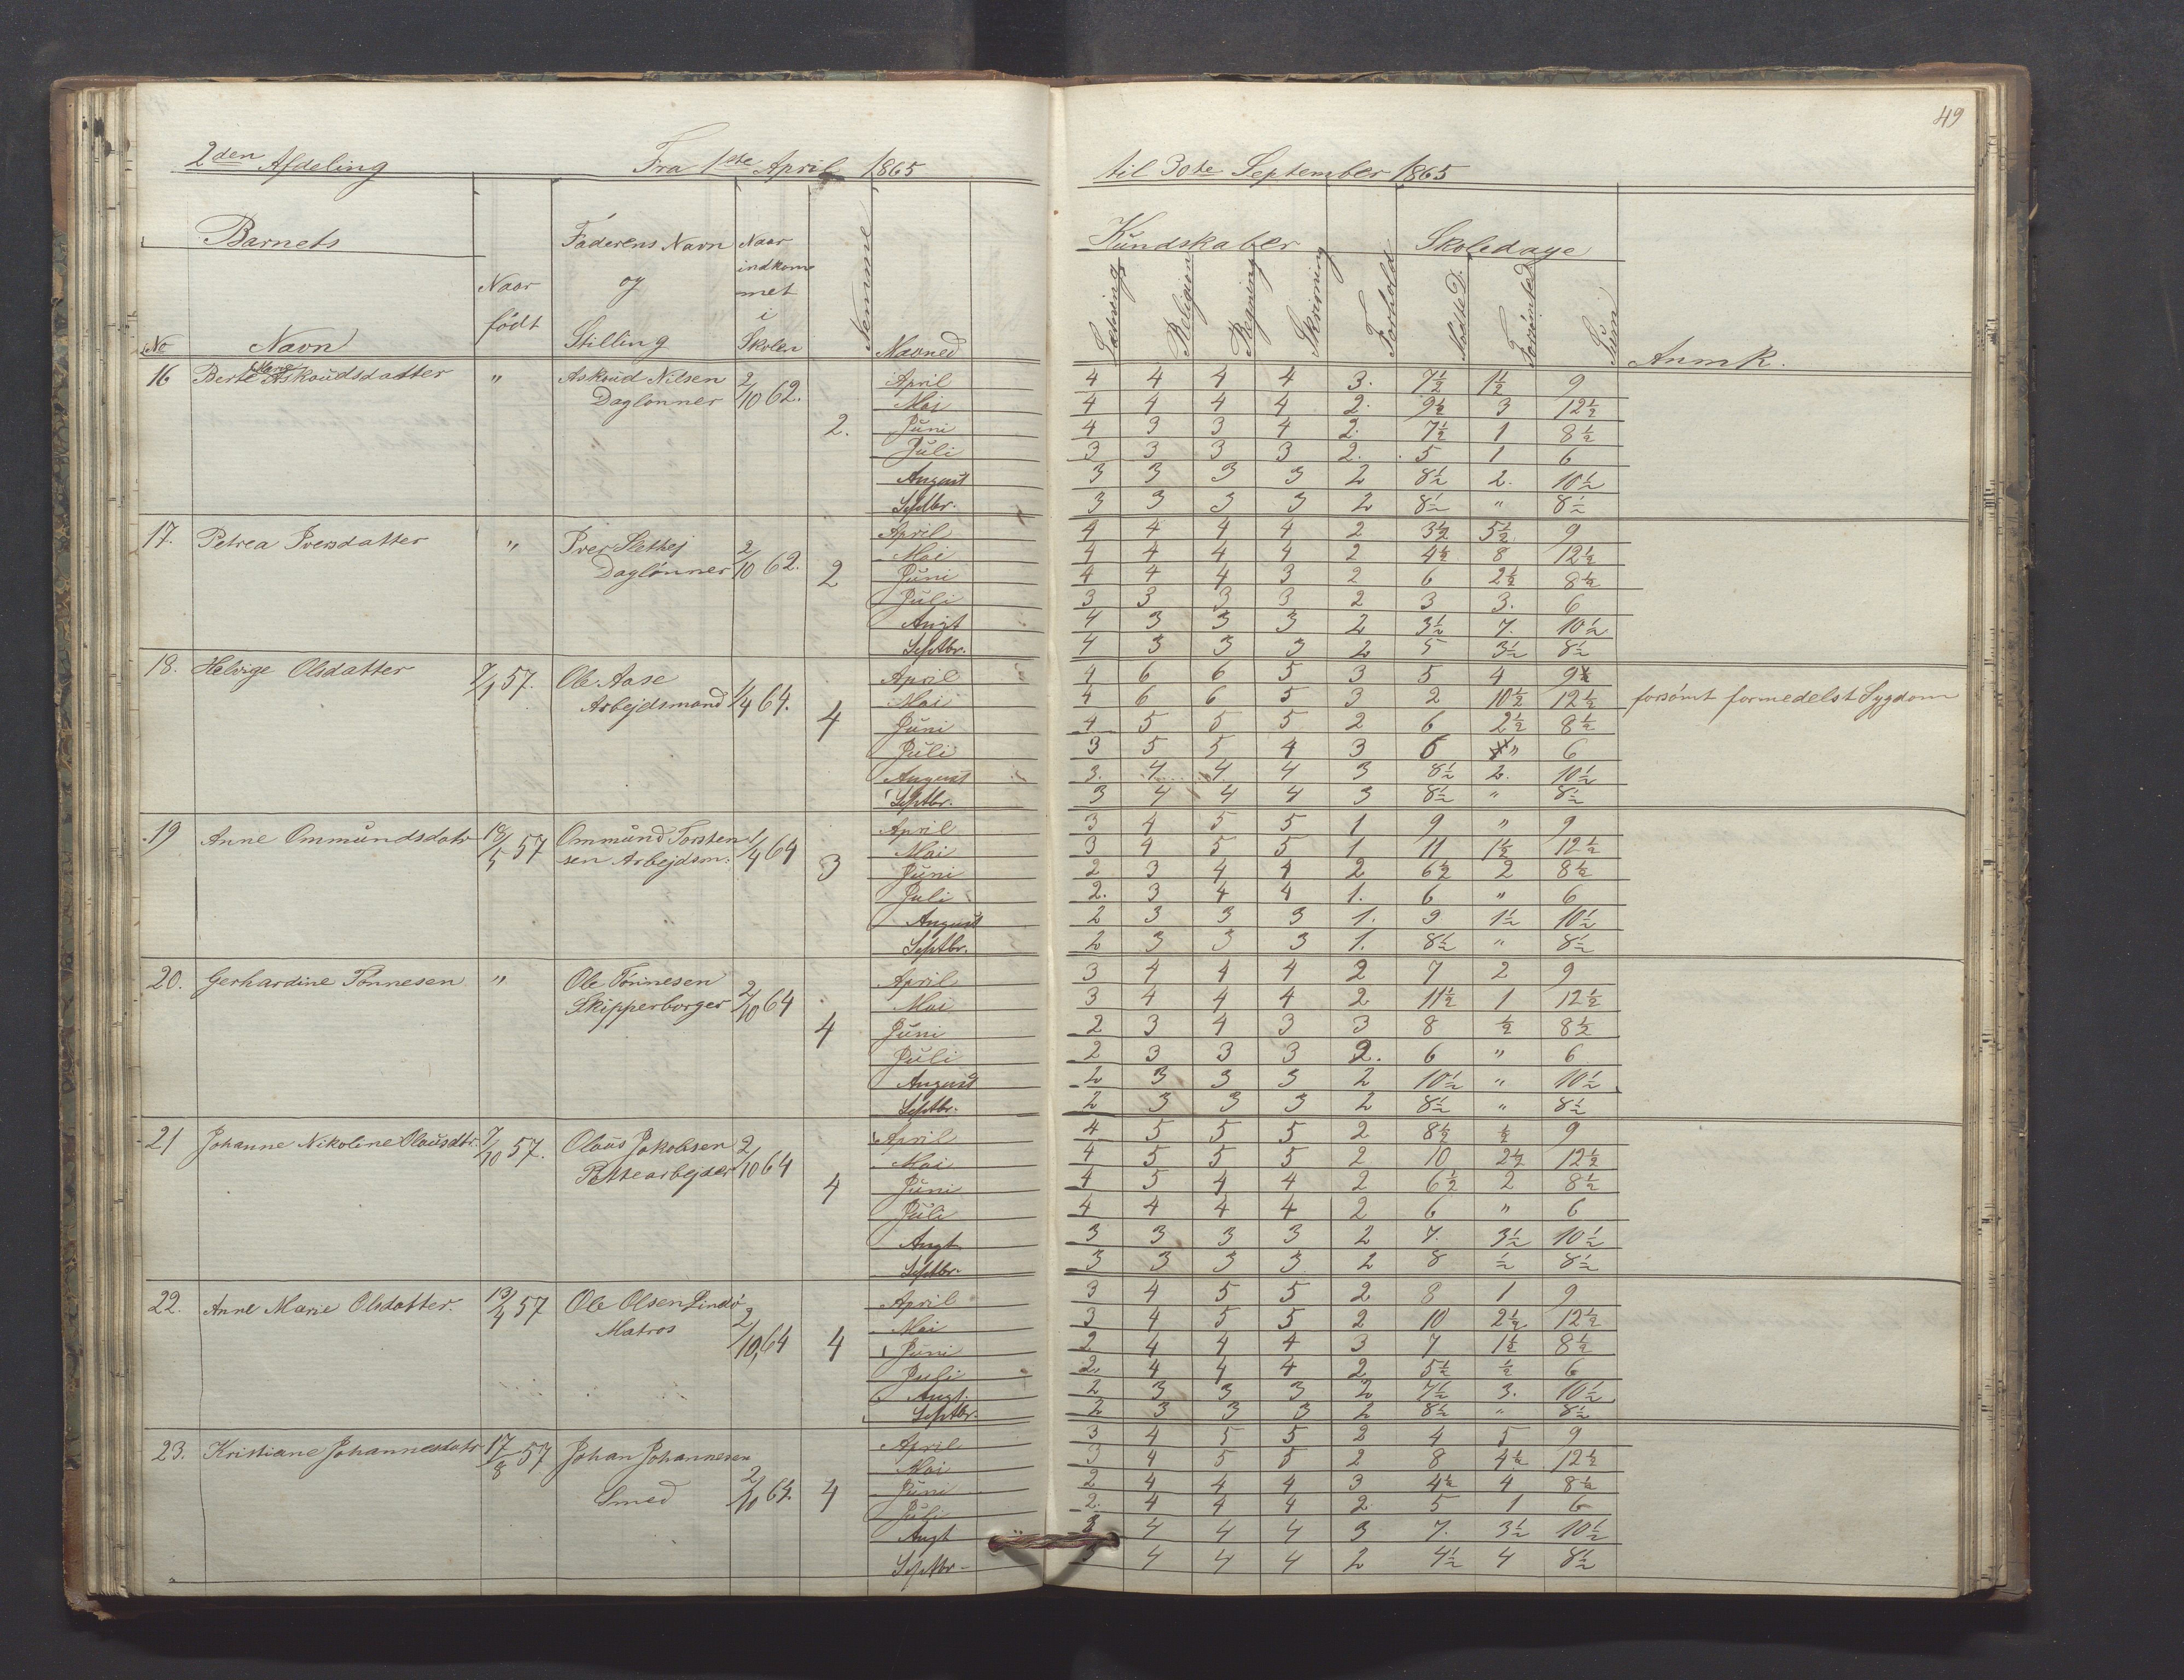 49
2den Afdeling Fra 1ste April 1865 til 30te September 1865
Barnets Naar født Faderens Navn og Stilling Naar indkommet i Skolen Nemme Maaned Kundskaber Forhold Skoledage
No Navn Læsning Religion Regning Skrivning Mødte D. Forsømte D. Sum Anmk.
16 Berte Marie Askoudsdatter " Askoud Nilsen 2/10 62. April 4 4 4 4 3. 7½ 1½ 9
Daglønner Mai 4 4 4 4 2. 9½ 3 12½
2. Juni 4 3 3 4 2. 7½ 1 8½
Juli 3 3 3 3 2. 5 1 6
August 3 3 3 3 2 8½ 2. 10½
Septbr. 3 3 3 3 2 8½ " 8½
17. Petrea Iversdatter " Iver Slethej 2/10 62. April 4 4 4 4 2 3½ 5½ 9
Daglønner Mai 4 4 4 4 2 4½ 8 12½
2 Juni 4 4 4 3 2 6 2½ 8½
Juli 3 3 3 3 2 3 3. 6
Augt 4 3 3 3 2 3½ 7. 10½
Septbr. 4 3 3 3 2 5 3½ 8½
18. Helvige Olsdatter 7/1 57. Ole Aase 1/4 64. April 4 6 6 5 3 5 4 9
Arbejdsmand Mai 4 6 6 5 3 2 10½ 12½ forsømt formedelst Sygdom
4 Juni 4 5 5 5 2 6 2½ 8½
Juli 3 5 5 4 3 6 " 6
August 3. 4 4 4 3 8½ 2. 10½
Septbr. 3 4 4 4 3 8½ " 8½
19 Anne Ommundsdatr 18/5 57 Ommund Torsten- 1/4 64 April 3 4 5 5 1 9 " 9
sen Arbejdsm. Mai 3 4 5 5 1 11 1½ 12½
3 Juni 2 3 4 4 2 6½ 2 8½
Juli 2. 3 4 4 1. 6 " 6
August 2 3 3 3 1. 9 1½ 10½
Septbr. 2 3 3 3 1. 8½ " 8½
20. Gerhardine Tønnesen " Ole Tønnesen 2/10 64 April 3 4 4 4 2 7 2 9
Skipperborger Mai 3 4 4 4 2 11½ 1 12½
4 Juni 2 3 4 3 3 8 ½ 8½
Juli 2 3 3 3 2. 6 " 6
August 2 3 3 3 2 10½ " 10½
Septbr. 2 3 3 3 2 8½ " 8½
21 Johanne Nikoline Olausdtr. 7/10 57. Olaus Jakobsen 2/10 64 April 4 5 5 5 2 8½ ½ 9
Pottearbejder Mai 4 5 5 5 2 10 2½ 12½
4 Juni 4 5 4 4 2 6½ 2 8½
Juli 4 4 4 4 2 6 " 6
Augt. 3 3 3 3 2 7. 3½ 10½
Septbr. 3 3 3 3 2 8 ½ 8½
22. Anne Marie Olsdatter. 13/4 57 Ole Olsen Lindø 2/10, 64 April 3 4 5 5 2 8 1 9
Matros Mai 3 4 5 5 2 10 2½ 12½
4 Juni 2 4 4 4 3 7 1½ 8½
Juli 2. 4 4 4 2 5½ ½ 6
Augt. 2 3 3 3 2 7½ 3. 10½
Septbr. 2 3 3 3 2 8½ " 8½
23. Kristiane Johannesdatr 17/8 57 Johan Johannesen April 3 4 5 5 2 4 5 9
Smed 2/10 64 Mai 3 4 5 5 2 8 4½ 12½
4 Juni 2 4 4 4 3 4½ 4 8½
Juli 2. 4 4 4 2 5 1 6
Augt 3 4 4 4 3 7. 3½ 10½
Septbr. 3 4 4 4 2 4½ 4 8½